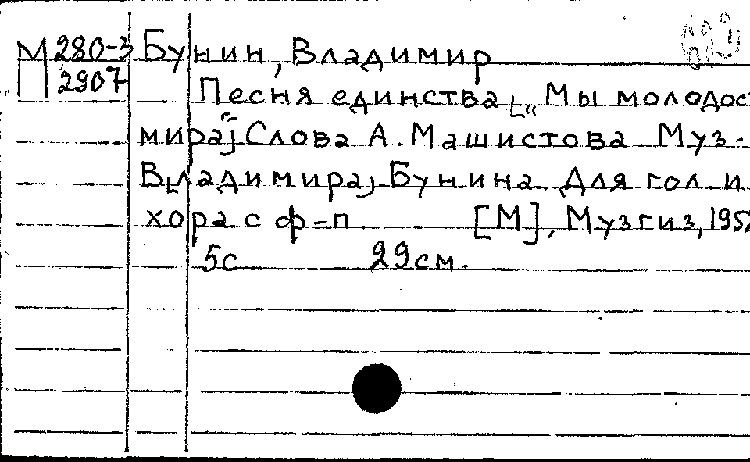 М 280-3 Бунин, Владимир
П 2907 Песня единства [„Мы молодос
мира“] Слова А. Машистова Муз-
В[ладимира] Бунина. Для гол и
хора с ф-п [М], Музгиз, 195
5с 29см.